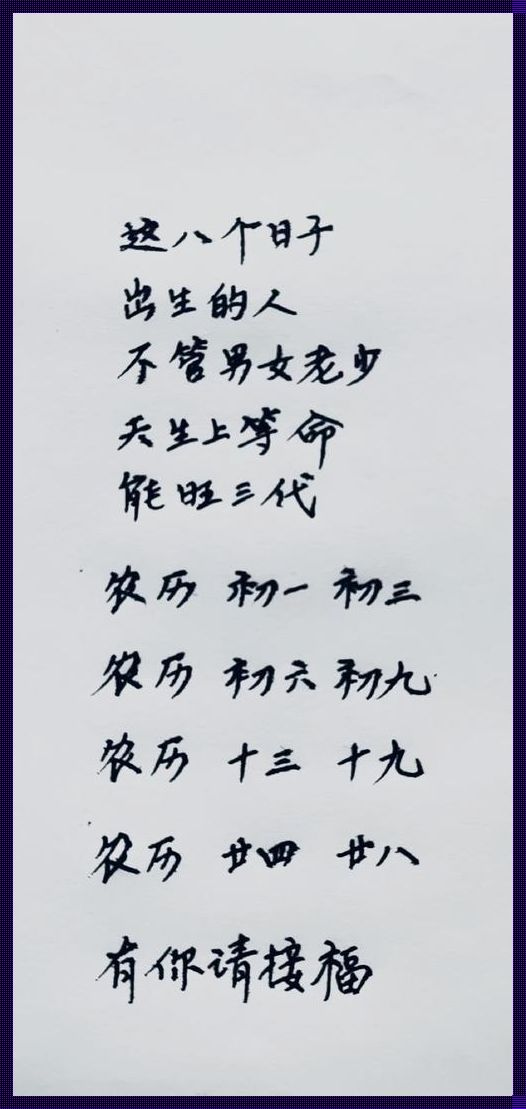 这八个日子
出生的人
不管男女老少
天生上等命
能旺三代
农历 初一 初三
农历 初六 初九
农历 十三 十九
农历 廿四 廿八
有你请接福